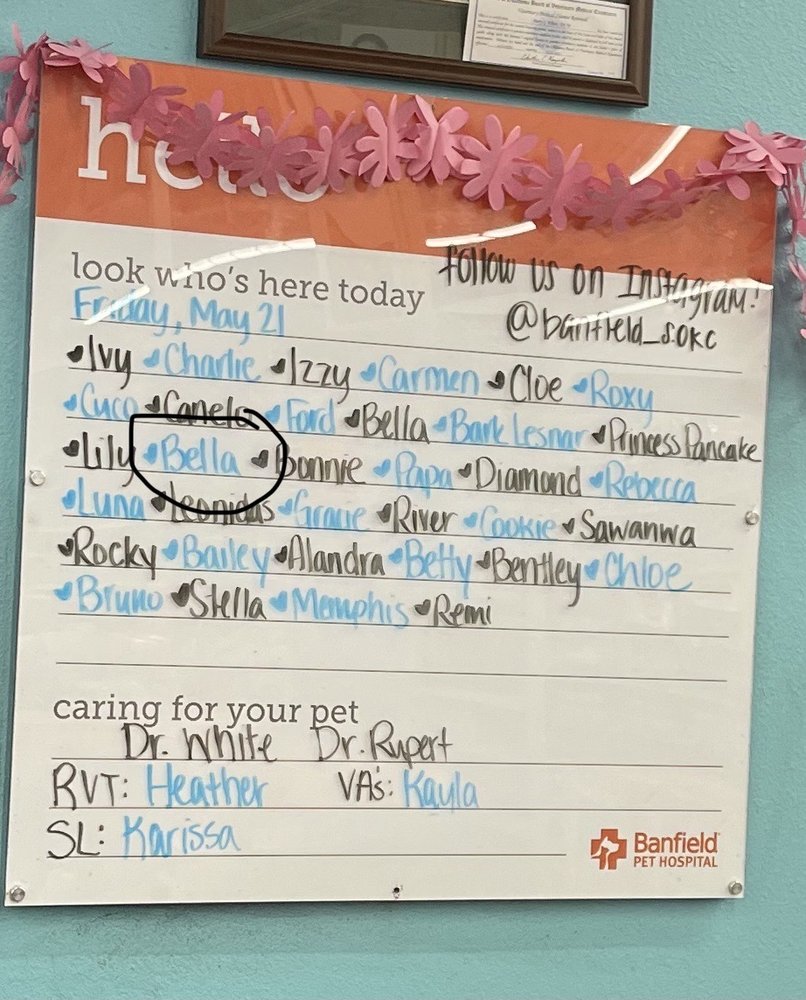 hello
look who's here today
Follow us on Instagram!
@banfield_sokc
Friday, May 21
Ivy Charlie Izzy Carmen Cloe Roxy
Cuco Canelo Ford Bella Bark Lesnar Princess Pancake
Lily Bella Bonnie Papa Diamond Rebecca
Luna Leonidas Gracie River Cookie Sawanwa
Rocky Bailey Alandra Betty Bentley Chloe
Bruno Stella Memphis Remi
caring for your pet
Dr. White Dr. Rupert
RVT: Heather VA's: Kayla
SL: Karissa
Banfield
PET HOSPITAL